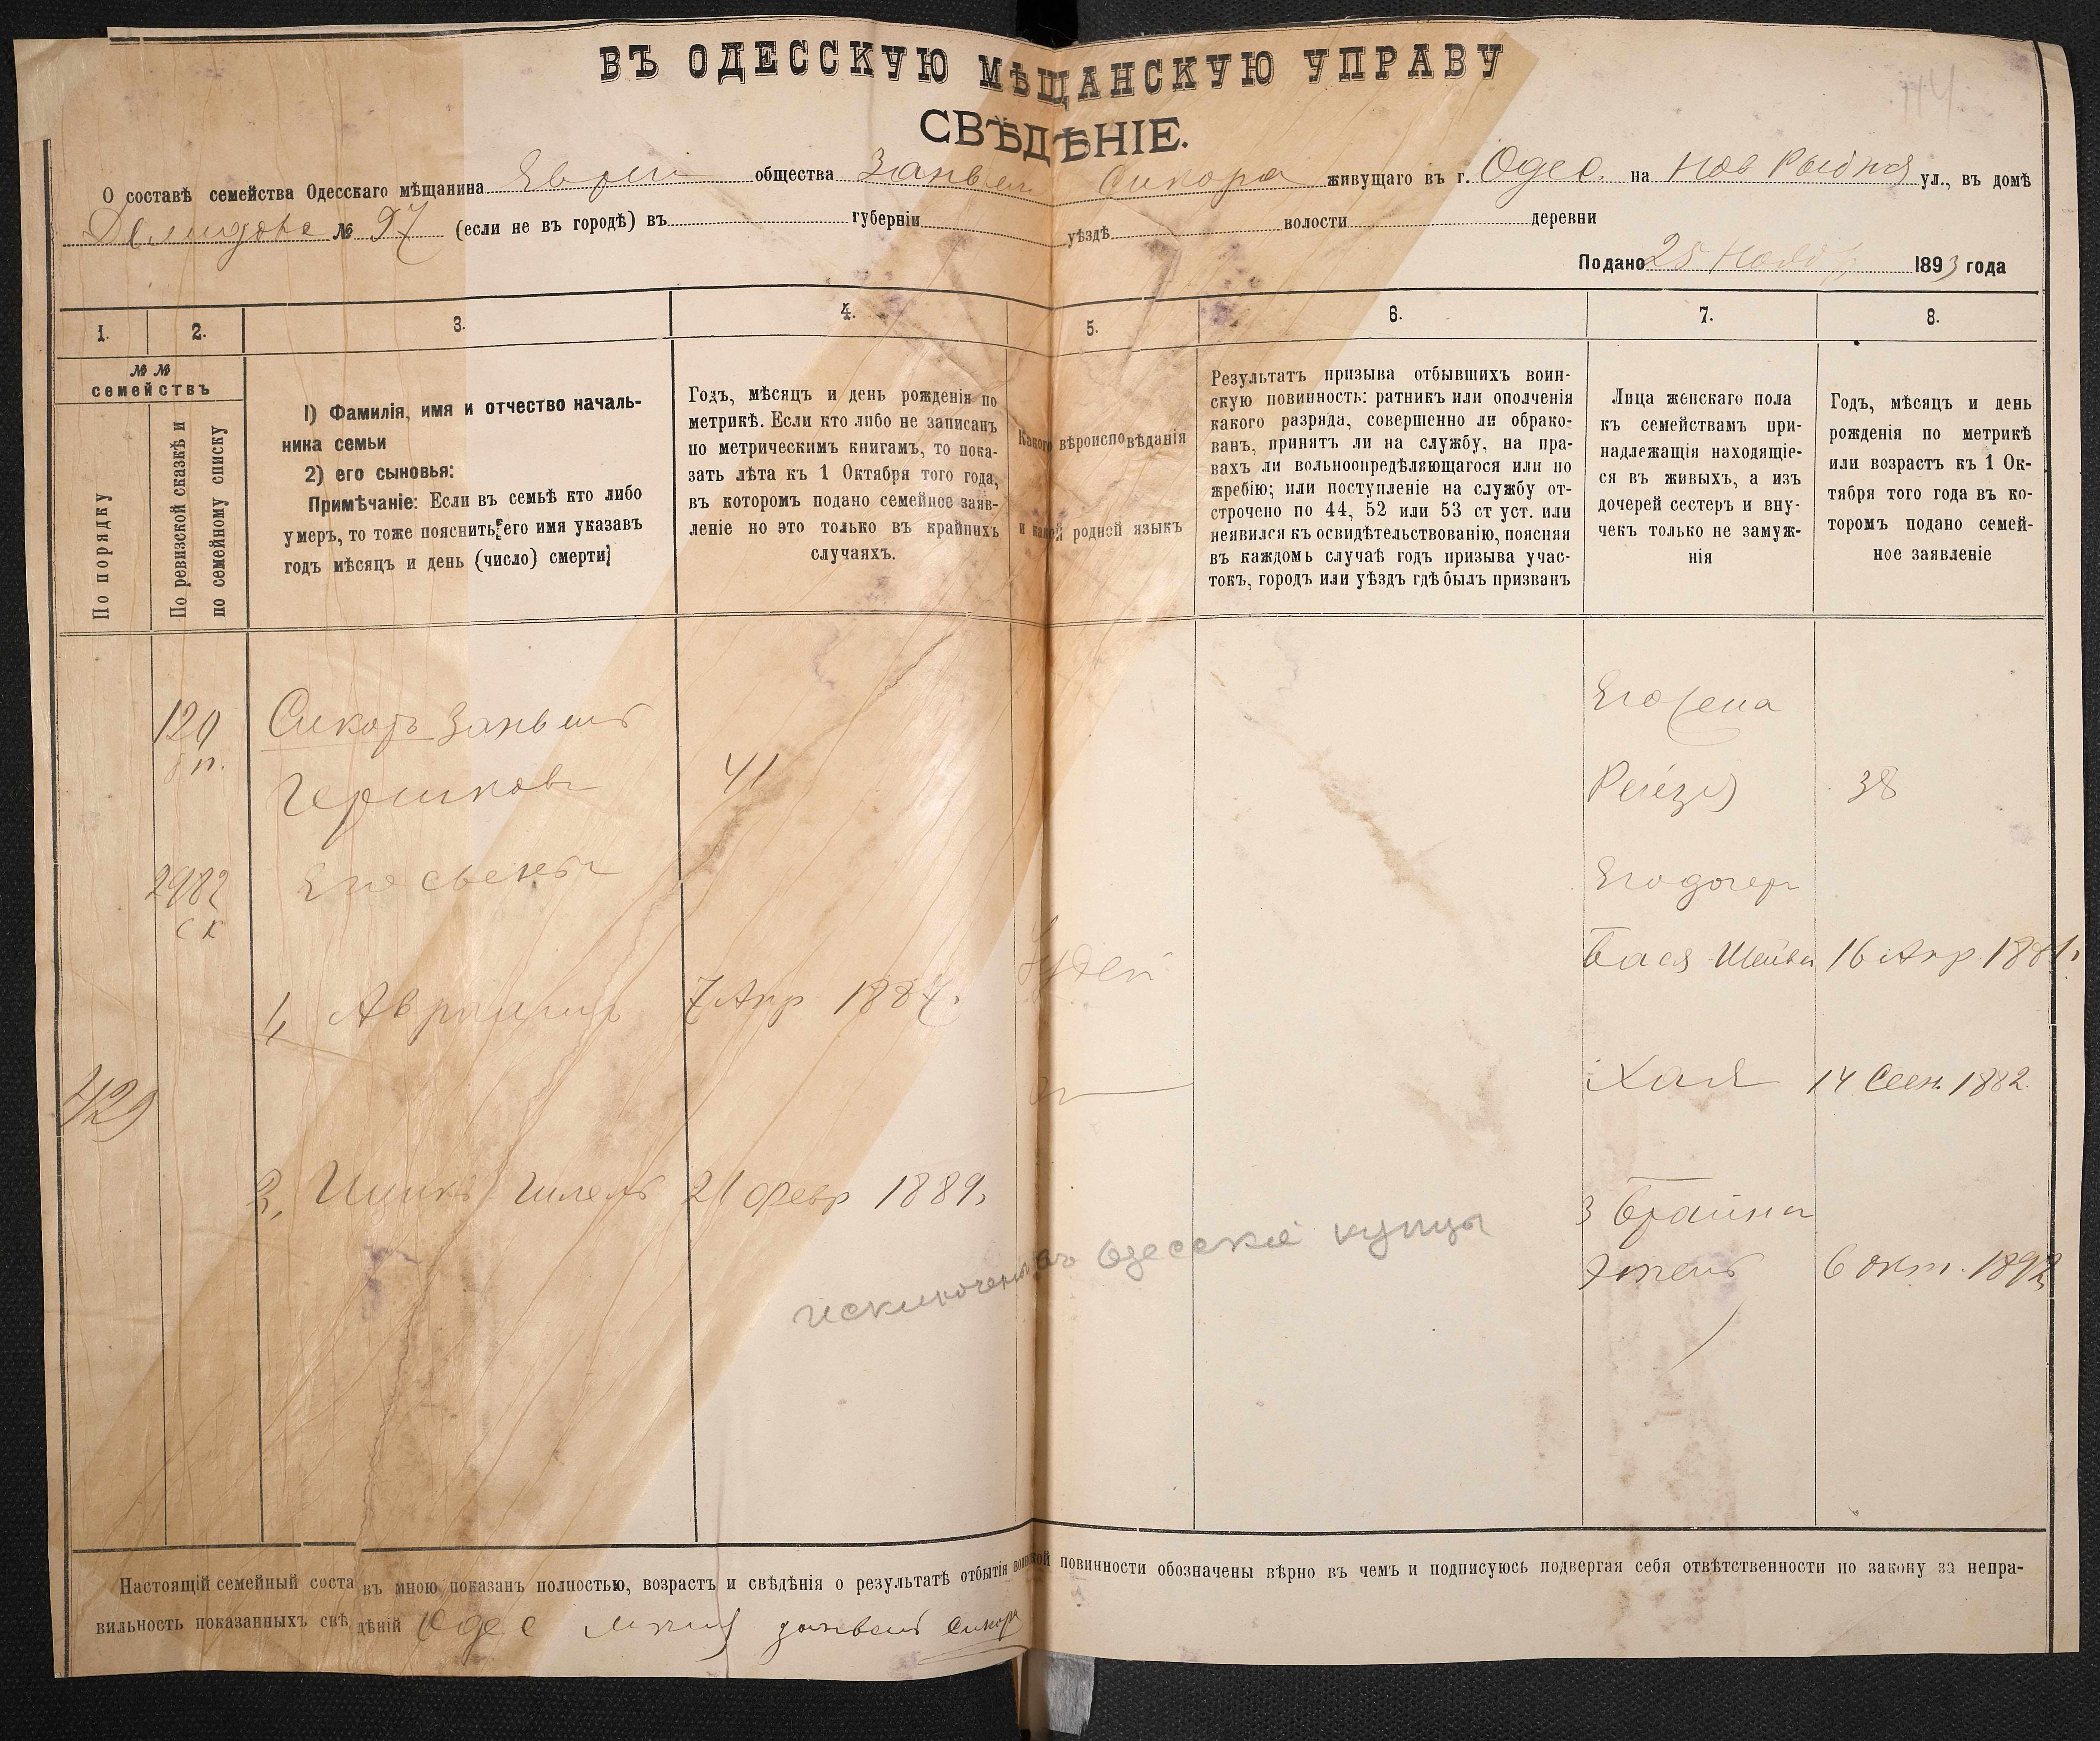 ВЪ ОДЕССКУЮ МѢЩАНСКУЮ УПРАВУ
СВѢДѢНІЕ.
О составѣ семейства Одесскаго мѣщанина общества Занвеля Сикора живущаго въ г. Одес. на Нов Рыбная ул., въ домѣ
Демидова № 97 (если не въ городѣ) въ губерніи уѣздѣ волости деревни
Подано 25 Ноября 1893 года
1. 2. 3. 4. 5. 6. 7. 8.
№ № семействъ
По порядку
По ревизской сказкѣ и
по семейному списку
1) Фамилія, имя и отчество началь-
ника семьи
2) его сыновья:
Примѣчаніе: Если въ семьѣ кто либо
умеръ, то тоже пояснить его имя указавъ
годъ мѣсяцъ и день (число) смерти
Годъ, мѣсяцъ и день рожденія по
метрикѣ. Если кто либо не записанъ
по метрическимъ книгамъ, то пока-
зать лѣта къ 1 Октября того года,
въ которомъ подано семейное заяв-
леніе но это только въ крайнихъ
случаяхъ.
Какого вѣроисповѣданія
и какой родней языкъ
Результатъ призыва отбывшихъ воин-
скую повинность: ратникъ или ополченія
какого разряда, совершенно ли обрако-
ванъ, принятъ ли на службу, на пра-
вахъ ли вольноопредѣляющагося или по
жребію; или поступленіе на службу от-
строчено по 44, 52 или 53 ст уст. или
неявился къ освидѣтельствованію, поясняя
въ каждомъ случаѣ годъ призыва учас-
токъ, городъ или уѣздъ гдѣ былъ призванъ
Лица женскаго пола
къ семействамъ при-
надлежащія находящіе-
ся въ живыхъ, а изъ
дочерей сестеръ и вну-
чекъ только не замуж-
нія
Годъ, мѣсяцъ и день
рожденія по метрикѣ
или возрастъ къ 1 Ок-
тября того года въ ко-
торомъ подано семей-
ное заявленіе
Его жена
Сикоръ Занвель
Гершковъ 41
38
Его сыновья
Его дочери
2982
Бася Шейва 16 Апр 1881.
1, Авраамъ 7 Апр 1887. Іудей
Хая 14 Сен. 1882.
429
2, Ицикъ Гилель 21 февр 1889,
3 Брайна
Этель 6 окт. 1892
исключены въ Одесскіе купцы
Настоящій семейный составъ мною показанъ полностью, возрастъ и свѣдѣнія о результатѣ отбытія воинской повинности обозначены вѣрно въ чемъ и подписуюсь подвергая себя отвѣтственности по закону за непра-
вильность показанныхъ свѣдѣній Одес занвель Сикоръ